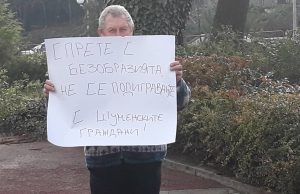 СПРЕТЕ С
БЕЗОБРАЗИЯТА
ЧЕ СЕ ПОДИГРАВАТЕ
С ШУМЕНСКИТЕ
ГРАЖДАНИ!